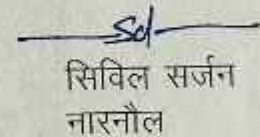 Sd
सिविल सर्जन
नारनौल